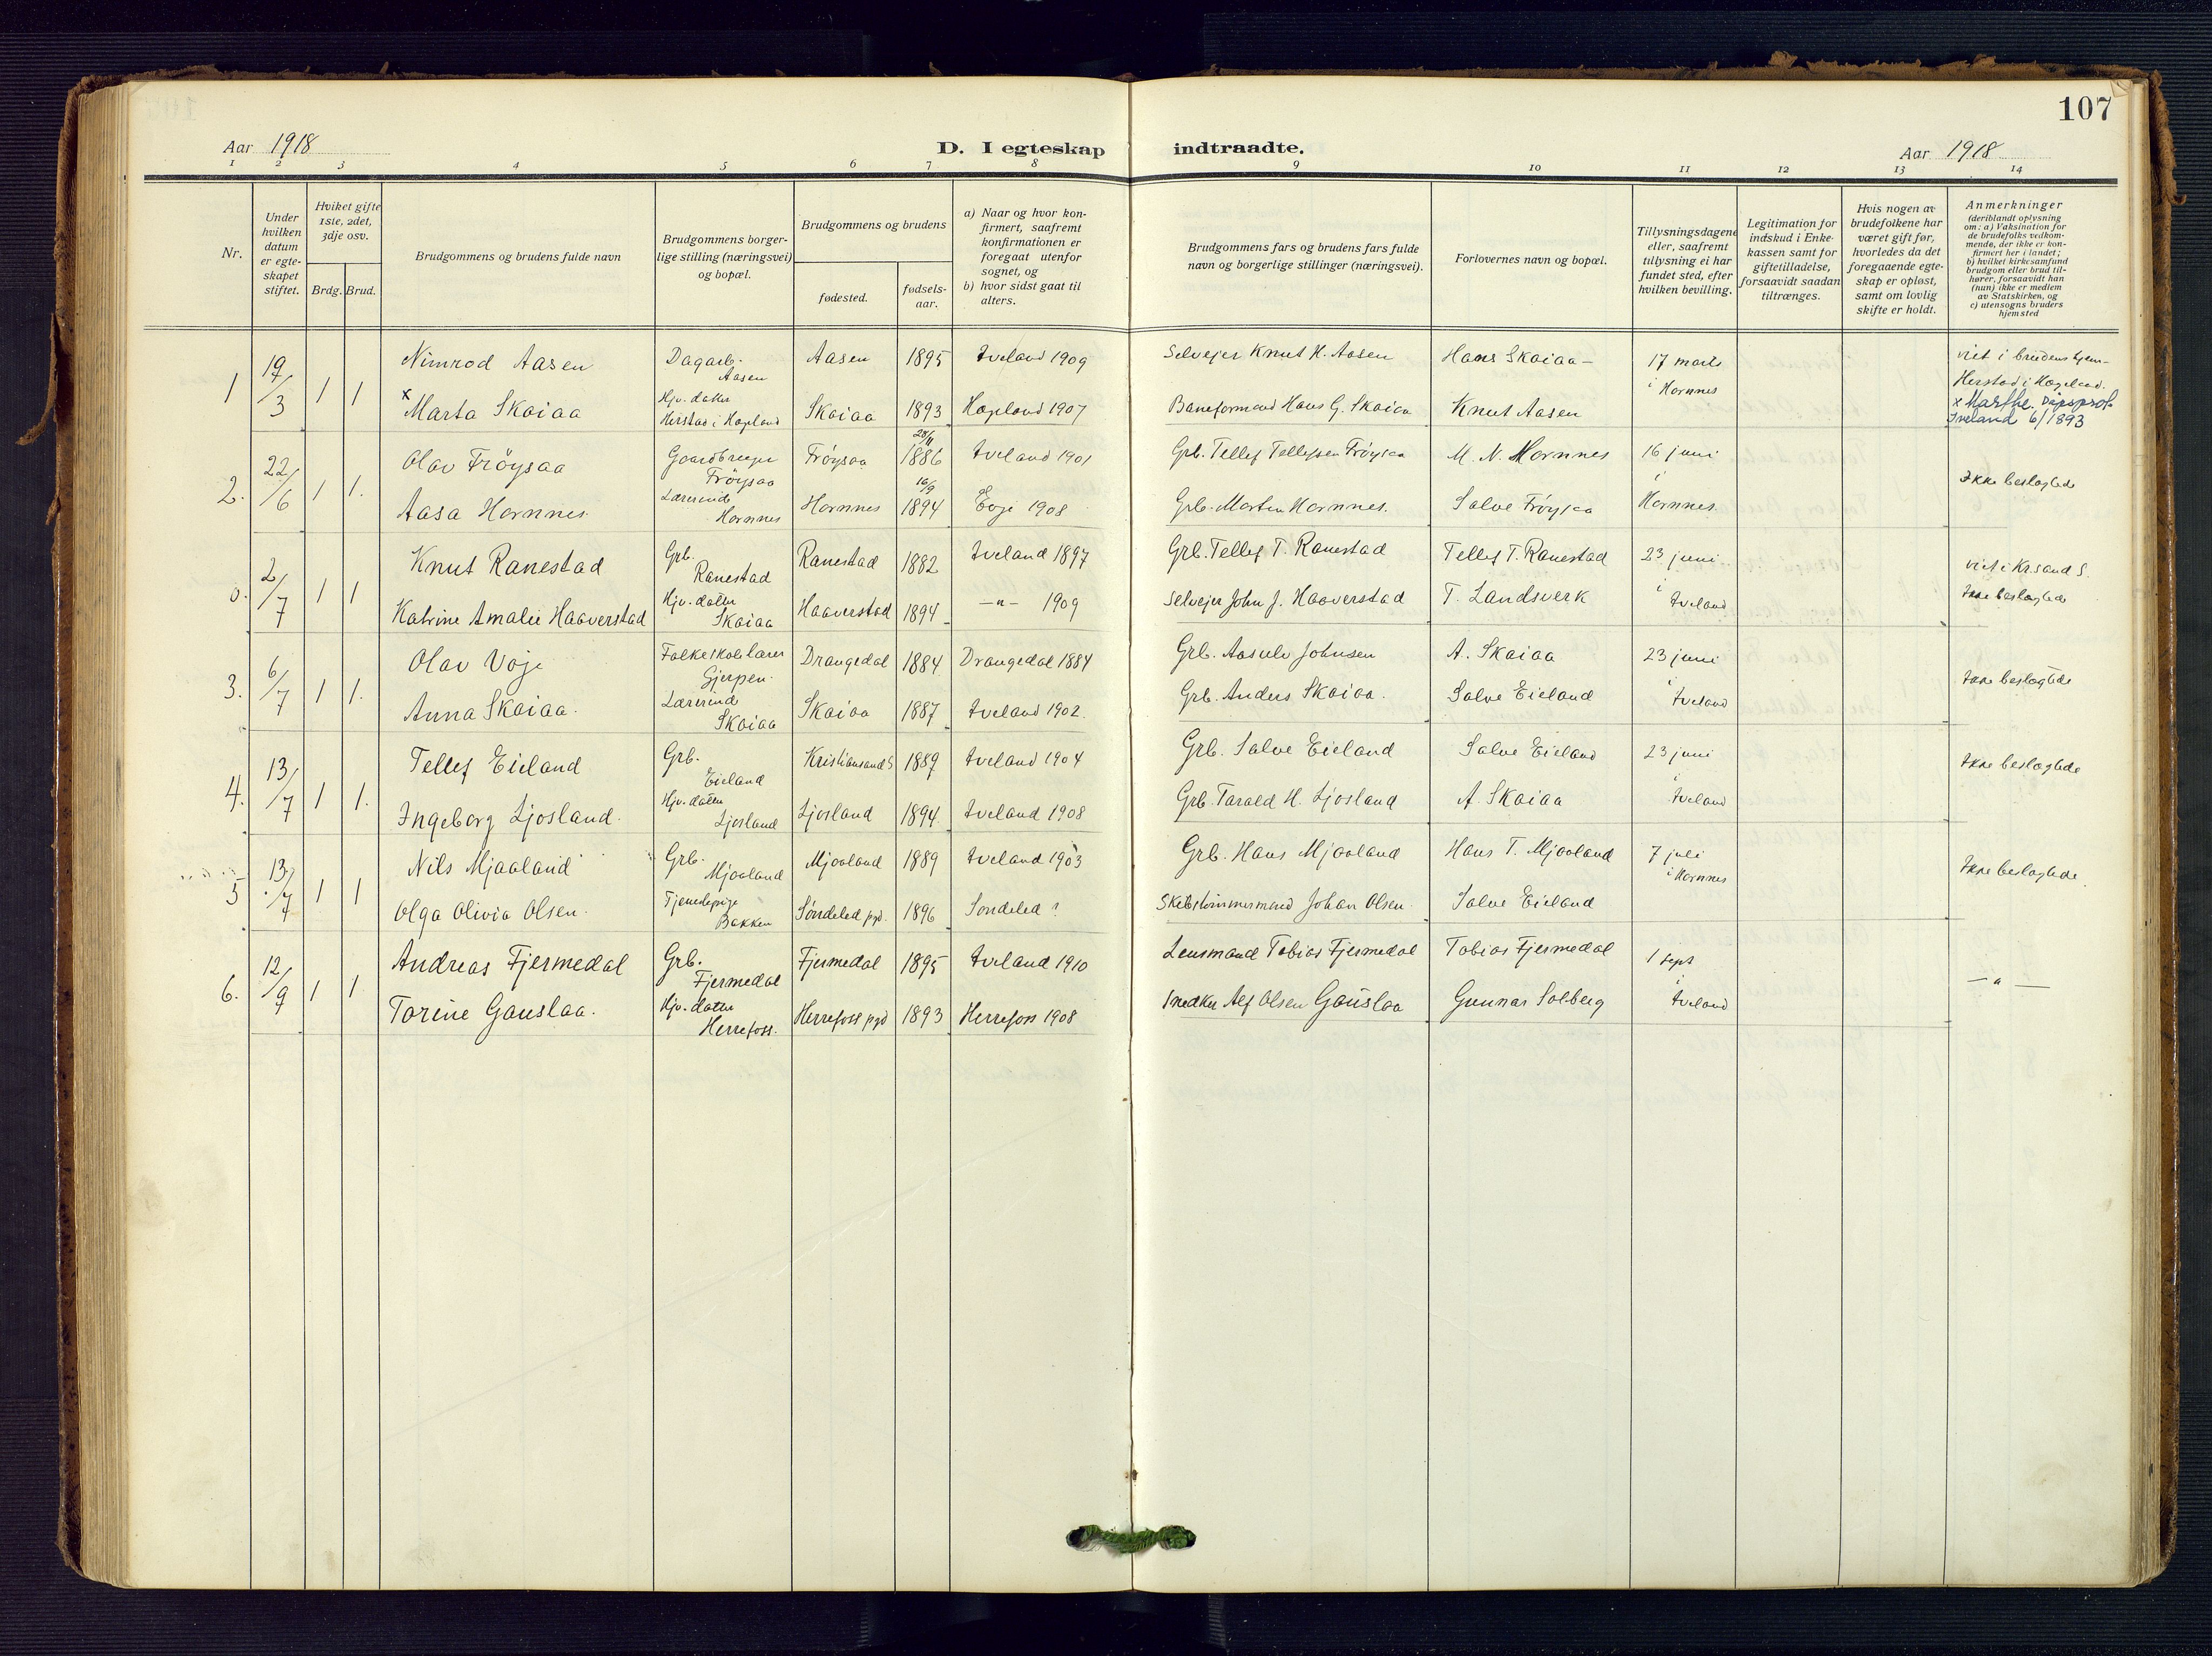 107
Aar 1918
D. I egteskap indtraadte.
Aar 1918
1 2 3 4 5 6 7 8 9 10 11 12 13 14
Nr.
Under hvilken datum er egteskapet stiftet.
Hviket gifte 1ste, 2det, 3dje osv.
Brdg. Brud.
Brudgommens og brudens fulde navn
Brudgommens borgerlige stilling (næringsvei) og bopæl.
Brudgommens og brudens
fødested.
fødselsaar.
a) Naar og hvor konfirmert, saafremt konfirmationen er foregaat utenfor sognet, og
b) hvor sidst gaat til alters.
Brudgommens fars og brudens fars fulde navn og borgerlige stillinger (næringsvei).
Forlovernes navn og bopæl.
Tillysningsdagene eller, saafremt tillysning ei har fundet sted, efter hvilken bevilling.
Legitimation for indskud i Enkekassen samt for giftetilladelse, forsaavidt saadan tiltrænges.
Hvis nogen av brudefolkene har været gift før, hvorledes da det foregaaende egteskap er opløst, samt om lovlig skifte er holdt.
Anmerkninger
(deriblandt oplysning om: a) Vaksination for de brudefolks vedkommende, der ikke er konfirmert her i landet; b) hvilket kirkesamfund brudgom eller brud tilhører, forsaavidt han (hun) ikke er medlem av Statskirken, og c) utensogns bruders hjemsted
1 19/3 1 1 Nimrod Aasen Dagarb. Aasen Aasen 1895 Iveland 1909 Selvejer Knut H. Aasen Hans Skaiaa 17 marts i Hornnes viet i brudens hjem
x Marta Skaiaa Hjv. datter Herstad i Hægeland Skaiaa 1893 Hægeland 1907 Baneformand Hans G. Skaiaa Knut Aasen Herstad i Hægeland.
x Marthe. Dåpsprot Iveland 6/1893
2. 22/6 1 1. Olav Frøysaa Gaardbruger Frøysaa Frøysaa 28/11 1886 Iveland 1901 Grb. Tellef Tellefsen Frøysaa M. N. Hornnes 16 juni i Hornnes Ikke beslegtede
Aasa Hornnes Lærerinde Hornnes Hornnes 16/9 1894 Evje 1908 Grb. Morten Hornnes. Salve Frøysaa
2/7 1 1 Knut Ranestad Grb. Ranestad Ranestad 1882 Iveland 1897 Grb. Tellef T. Ranestad Tellef T. Ranestad 23 juni i Iveland viet i Kr.sand S.
Katrine Amalie Haaverstad Hjv. datter Skaiaa Haaverstad 1894 —"— 1909 Selvejer John J. Haaverstad T. Landsverk Ikke beslegtede
3. 6/7 1 1. Olav Voje Folkeskolelærer Gjerpen. Drangedal 1884 Drangedal 1884 Grb. Aasulv Johnsen A. Skaiaa 23 juni i Iveland Ikke beslegtede
Anna Skaiaa. Lærerinde Skaiaa Skaiaa 1887 Iveland 1902. Grb. Anders Skaiaa. Salve Eieland
4. 13/7 1 1. Tellef Eieland Grb. Eieland Kristiansand S 1889 Iveland 1904 Grb. Salve Eieland Salve Eieland 23 juni i Iveland Ikke beslegtede
Ingeborg Ljosland. Hjv. datter Ljosland Ljosland 1894 Iveland 1908 Grb. Tarald H. Ljosland A. Skaiaa
5 13/7 1 1 Nils Mjaaland Grb. Mjaaland Mjaaland 1889 Iveland 1903 Grb. Hans Mjaaland Hans T. Mjaaland 7 juli i Hornnes Ikke beslegtede
Olga Olivia Olsen. Tjenestepige Bakken Søndeled pgd. 1896 Søndeled ? Skibstømmermand Johan Olsen Salve Eieland
6. 12/9 1 1 Andreas Fjermedal Grb. Fjermedal Fjermedal 1895 Iveland 1910 Lensmand Tobias Fjermedal Tobias Fjermedal 1 sept i Iveland — " —
Torine Gauslaa. Hjv. datter Herrefoss. Herrefoss pgd 1893 Herrefoss 1908 Snedker Alf Olsen Gauslaa Gunnar Solberg